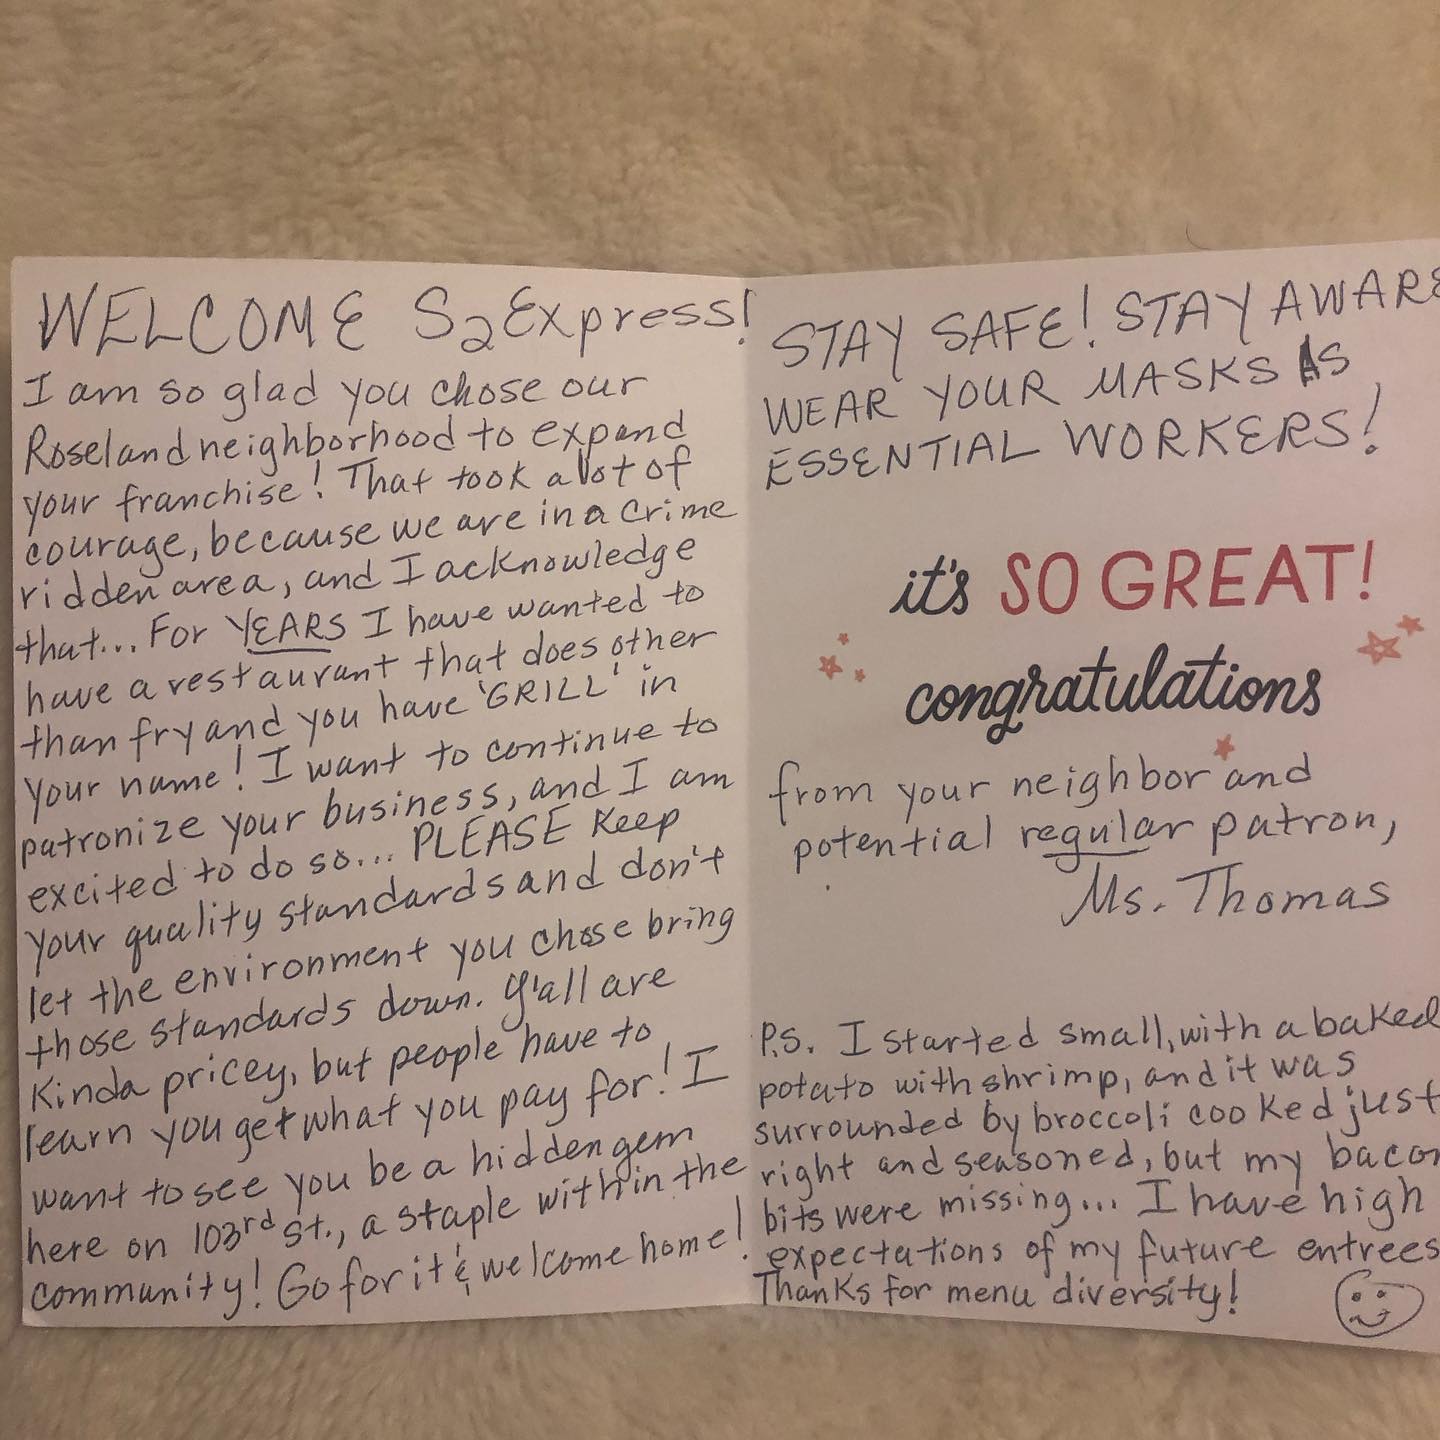 WELCOME S2Express!
I am so glad you chose our
Roseland neighborhood to expand
your franchise! That took a lot of
courage, because we are in a crime
ridden area, and I acknowledge
that... For YEARS I have wanted to
have a restaurant that does other
than fry and you have 'GRILL' in
your name! I want to continue to
patronize your business, and I am
excited to do so... PLEASE Keep
your quality standards and don't
let the environment you chose bring
those standards down. Y'all are
Kinda pricey, but people have to
learn you get what you pay for! I
want to see you be a hidden gem
here on 103rd st., a staple within the
community! Go for it & welcome home!
STAY SAFE! STAY AWARE
WEAR YOUR MASKS AS
ESSENTIAL WORKERS!
it's SO GREAT!
congratulations
from your neighbor and
potential regular patron,
Ms. Thomas
P.S. I started small, with a baked
potato with shrimp, and it was
surrounded by broccoli cooked just
right and seasoned, but my bacon
bits were missing... I have high
expectations of my future entrees
Thanks for menu diversity!